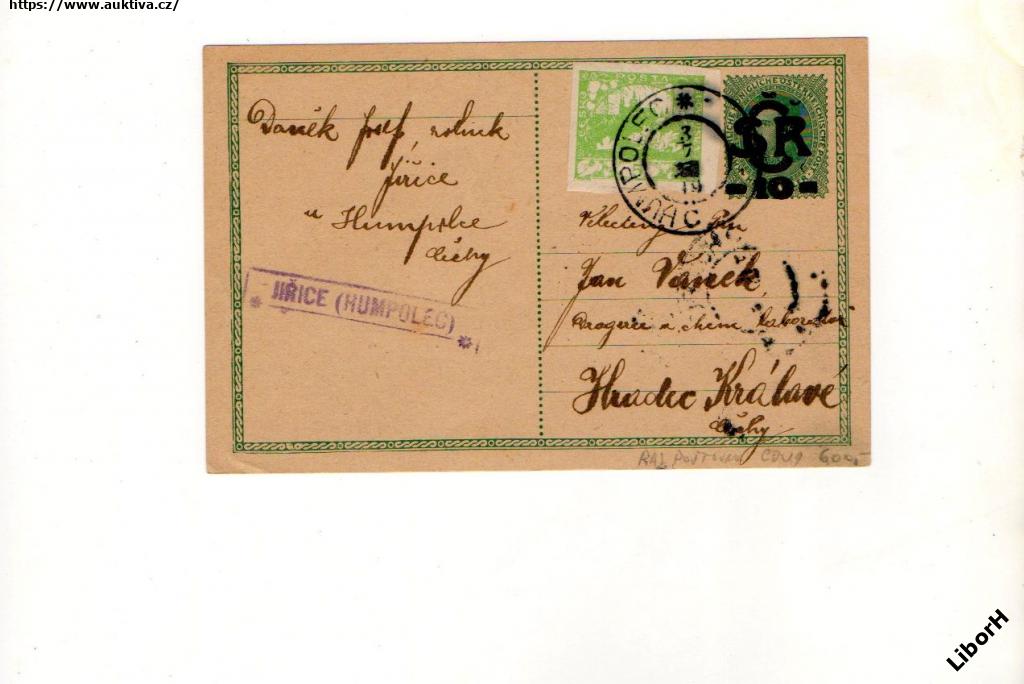 https://www.auktiva.cz/
Daněk Josef rolník
Jiřice
u Humpolce
Čechy
* JIŘICE (HUMPOLEC) *
POŠTA
ČESKO
HUMPOLEC
3
19
C
ČSR
-10-
Velectěný Pan
Jan Vaněk
Drogerie a chem. laboratoř
Hradec Králové
Čechy
600,-
LiborH